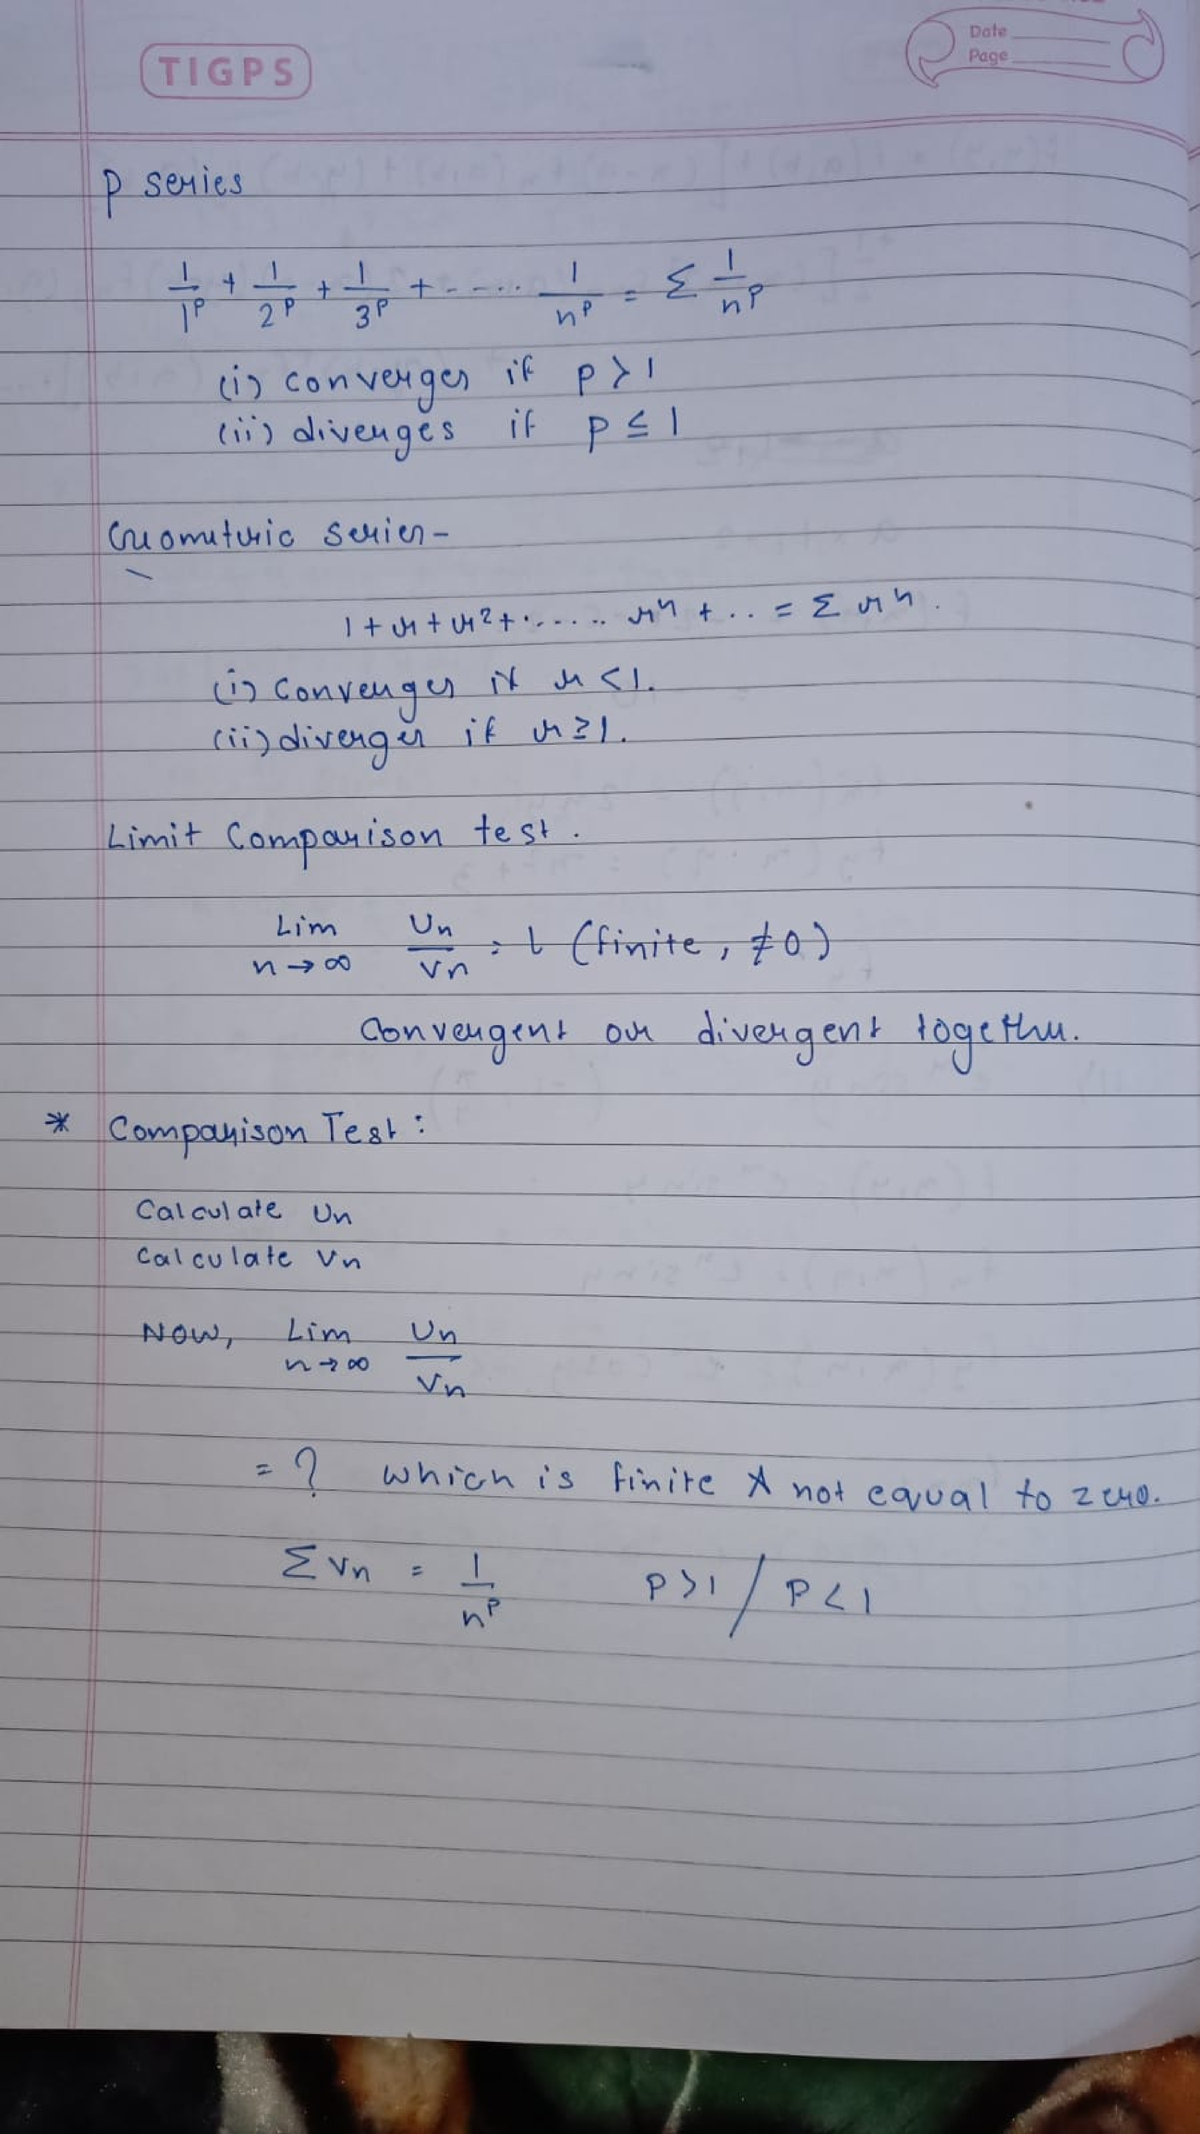 TIGPS
Date
Page
p series
1/1^p + 1/2^p + 1/3^p + - - ... 1/n^p = Σ 1/n^p
(i) converges if p > 1
(ii) diverges if p ≤ 1
Geometric series -
1 + r + r² + ...... r^n + .. = Σ r^n.
(i) Converges if r < 1.
(ii) diverges if r ≥ 1.
Limit Comparison test.
Lim n→∞ Un/Vn = l (finite, ≠ 0)
Convergent or divergent together.
* Comparison Test:
Calculate Un
Calculate Vn
Now, Lim n→∞ Un/Vn
= ? which is finite & not equal to zero.
Σ Vn = 1/n^p P > 1 / P < 1